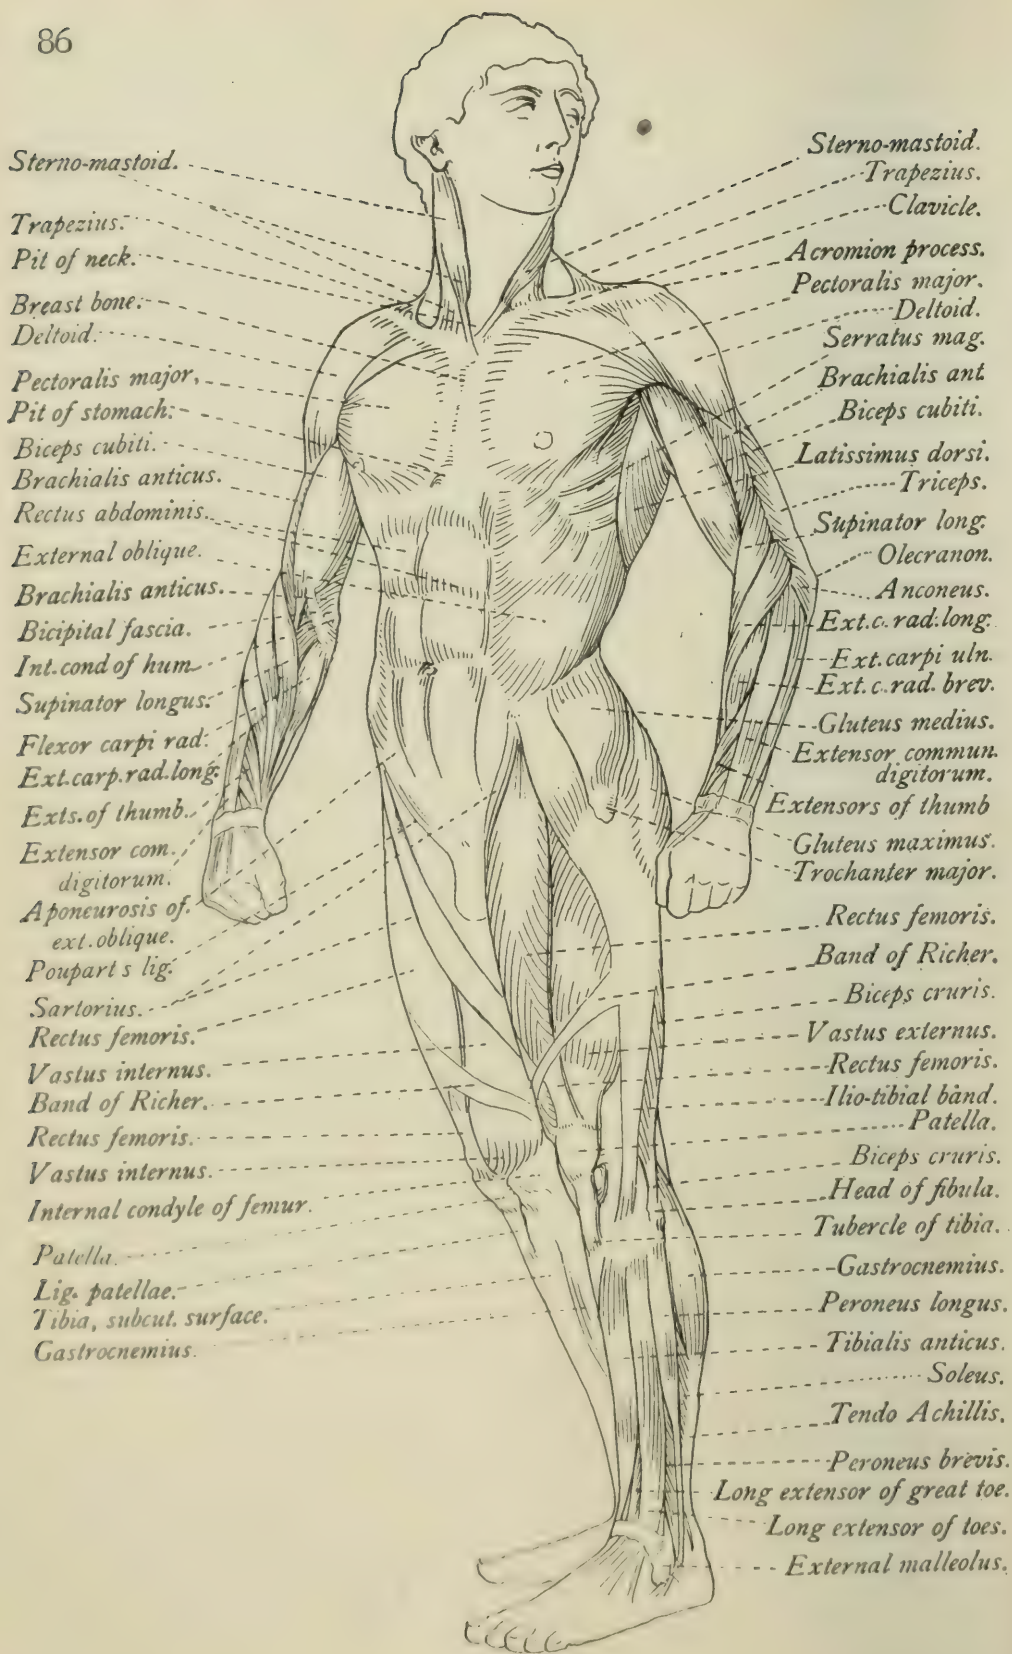 86
Sterno-mastoid.
Trapezius.
Pit of neck.
Breast bone.
Deltoid.
Pectoralis major,
Pit of stomach:
Biceps cubiti.
Brachialis anticus.
Rectus abdominis.
External oblique.
Brachialis anticus.
Bicipital fascia.
Int. cond of hum.
Supinator longus:
Flexor carpi rad:
Ext. carp. rad. long:
Exts. of thumb.
Extensor com.
digitorum.
Aponeurosis of.
ext. oblique.
Poupart s lig.
Sartorius.
Rectus femoris.
Vastus internus.
Band of Richer.
Rectus femoris.
Vastus internus.
Internal condyle of femur.
Patella.
Lig. patellae.
Tibia, subcut. surface.
Gastrocnemius.
Sterno-mastoid.
Trapezius.
Clavicle.
Acromion process.
Pectoralis major.
Deltoid.
Serratus mag.
Brachialis ant.
Biceps cubiti.
Latissimus dorsi.
Triceps.
Supinator long:
Olecranon.
Anconeus.
Ext. c. rad. long:
Ext. carpi uln.
Ext. c. rad. brev.
Gluteus medius.
Extensor commun.
digitorum.
Extensors of thumb
Gluteus maximus.
Trochanter major.
Rectus femoris.
Band of Richer.
Biceps cruris.
Vastus externus.
Rectus femoris.
Ilio-tibial band.
Patella.
Biceps cruris.
Head of fibula.
Tubercle of tibia.
Gastrocnemius.
Peroneus longus.
Tibialis anticus.
Soleus.
Tendo Achillis.
Peroneus brevis.
Long extensor of great toe.
Long extensor of toes.
External malleolus.